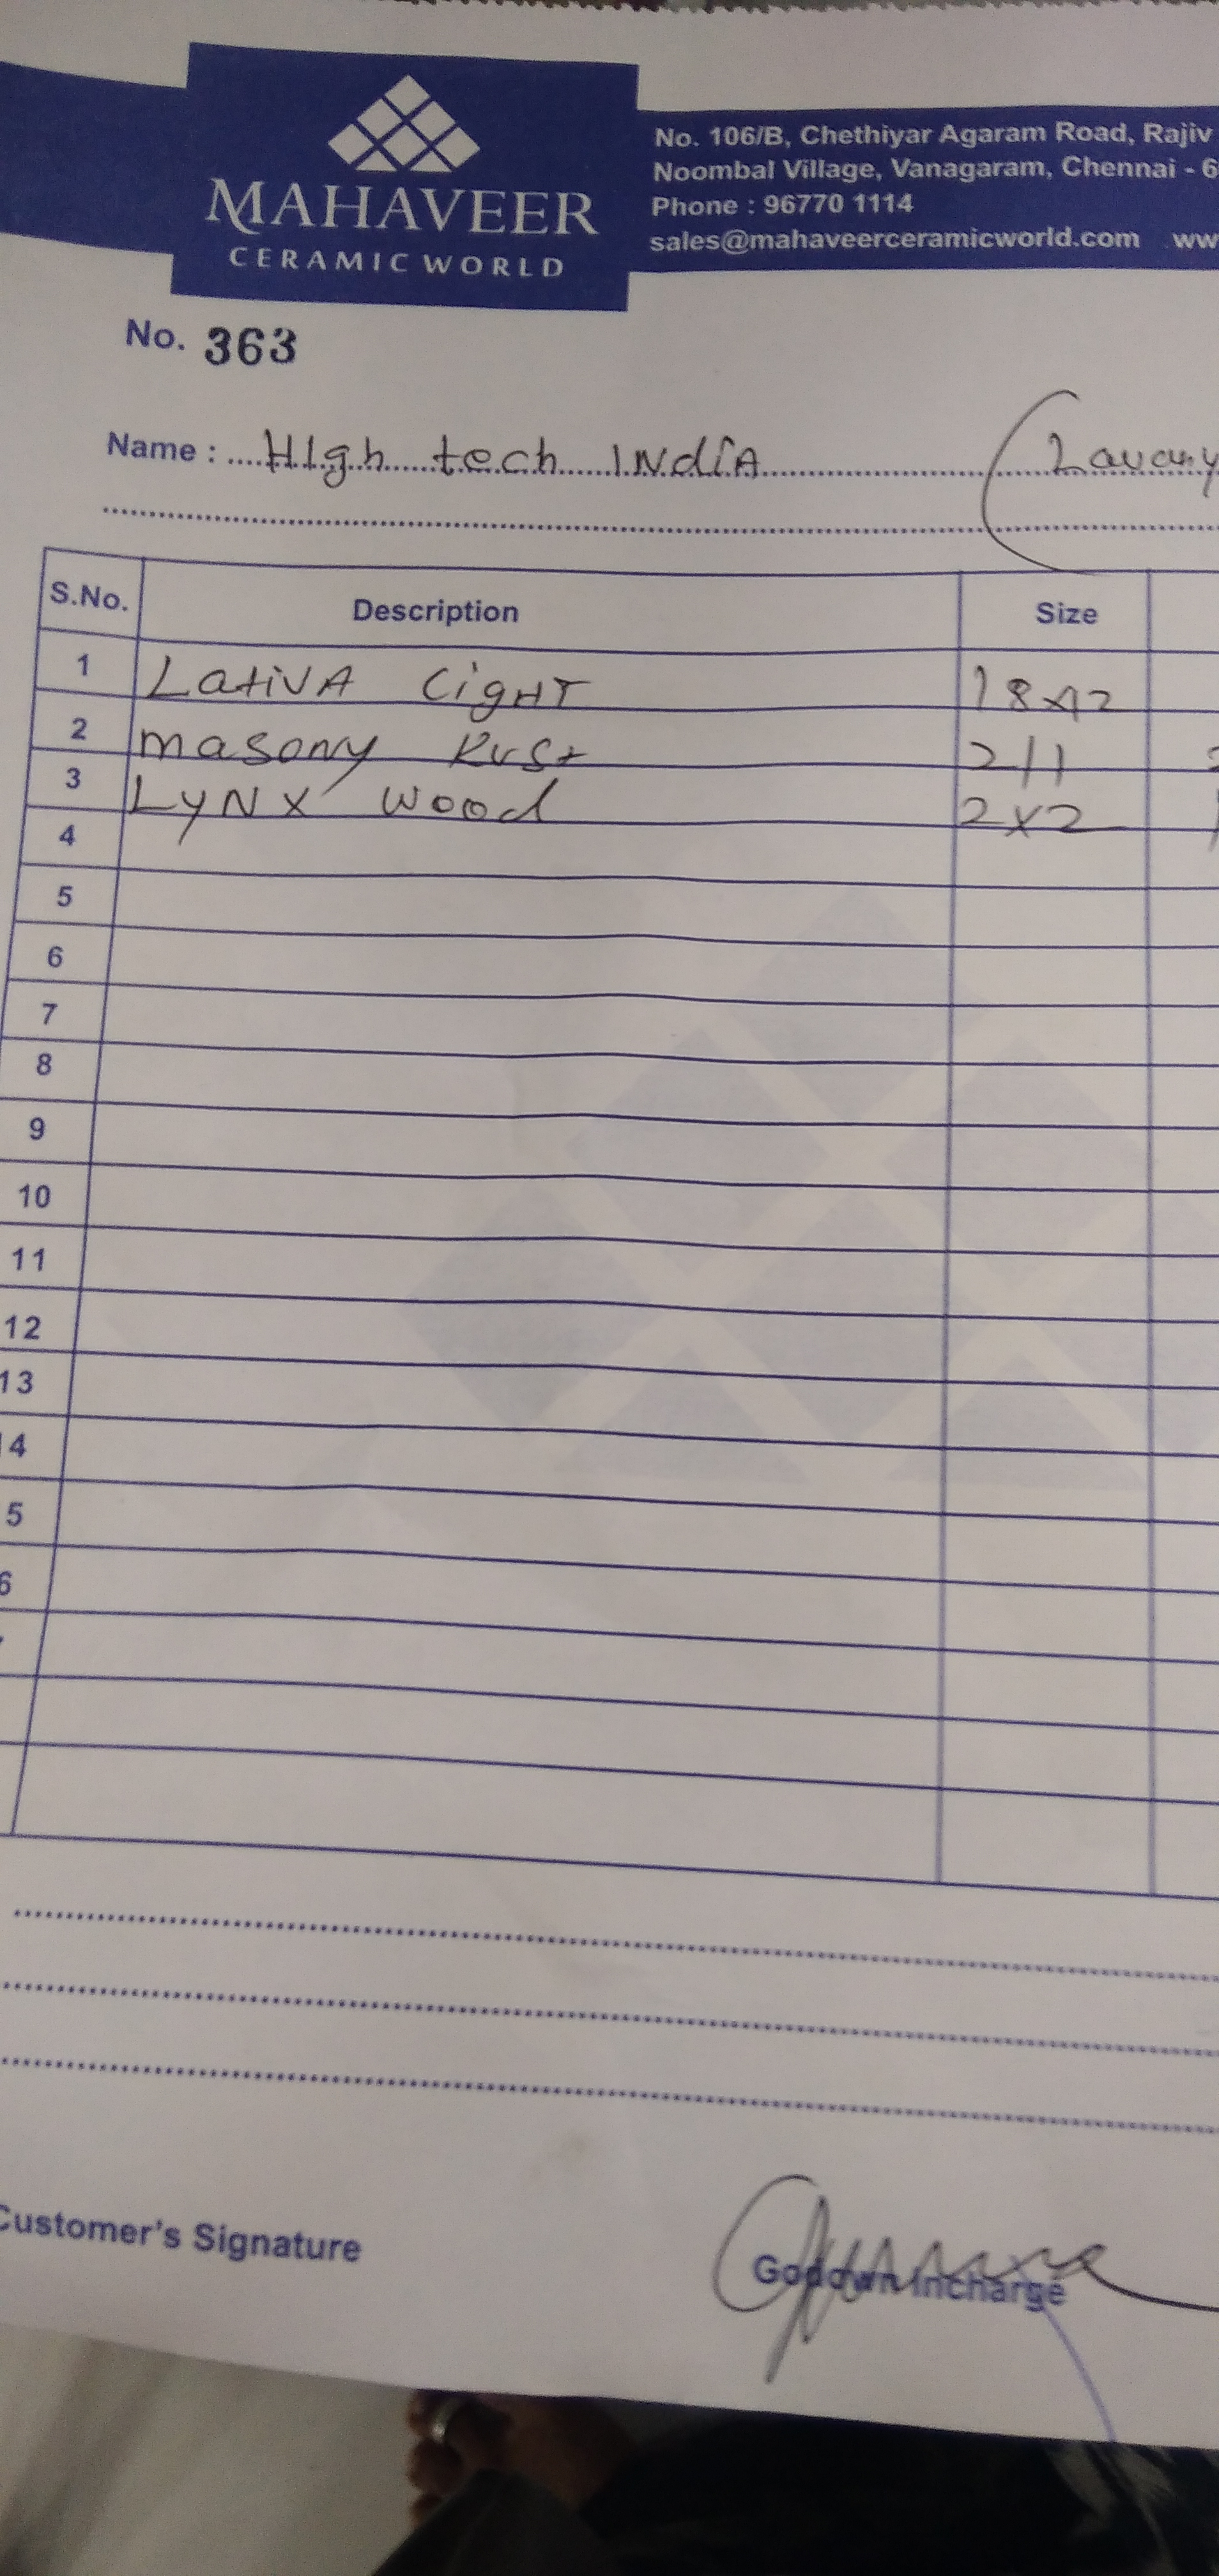 MAHAVEER
CERAMIC WORLD
No. 106/B, Chethiyar Agaram Road, Rajiv
Noombal Village, Vanagaram, Chennai - 6
Phone : 96770 1114
sales@mahaveerceramicworld.com ww
No. 363
Name : HIgh tech INdiA (Lavany
S.No. Description Size
1 LatiVA Light 18x12
2 masony Rust 2/1
3 LyNX wood 2x2
4
5
6
7
8
9
10
11
12
13
14
5
6
Customer's Signature Godown Incharge